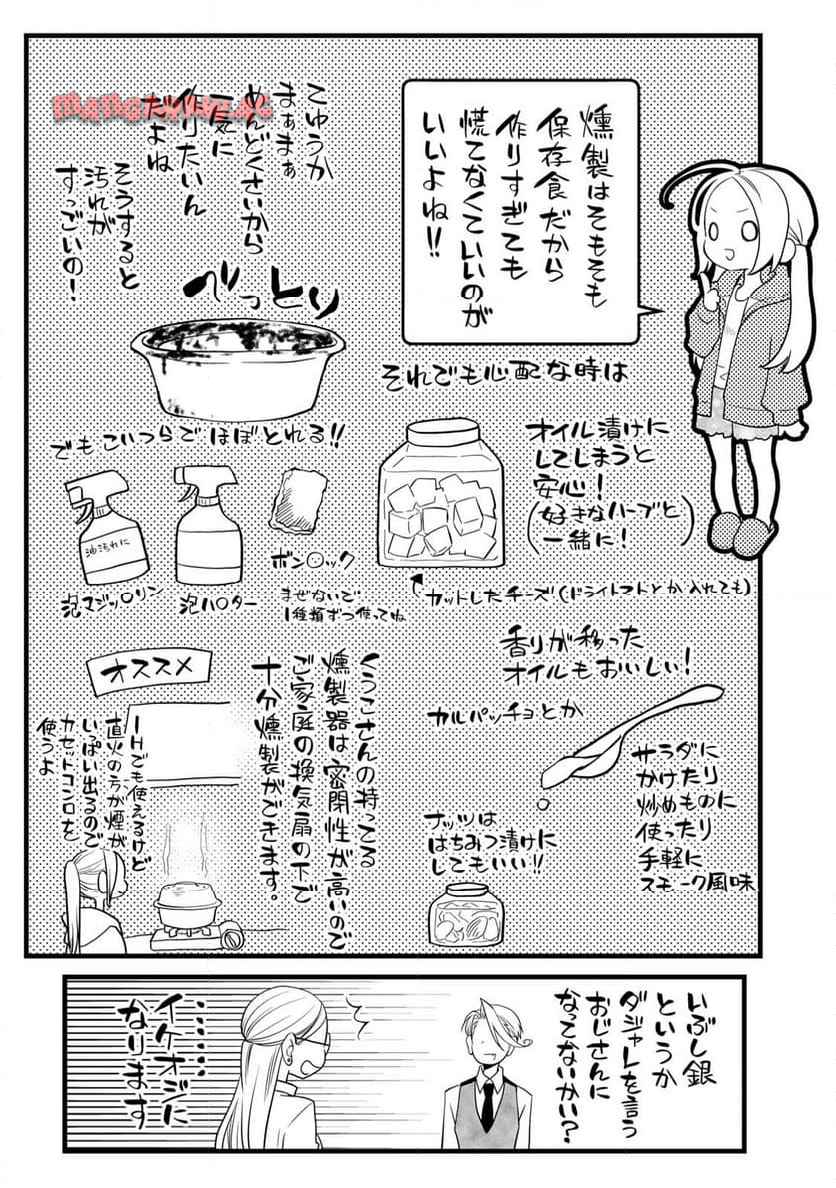 燻製はそもそも
保存食だから
作りすぎても
慌てなくていいのが
いいよね!!
てゆうか
まぁまぁ
めんどくさいから
一気に
作りたいん
だよね
そうすると
汚れが
すっごいの!
べっとり
でもこいつらでほぼとれる!!
油汚れに
泡マジッ〇リン
泡ハ〇ター
ボン〇ック
まぜないで
1種類ずつ使ってね
それでも心配な時は
オイル漬けに
してしまうと
安心!
(好きなハーブと
一緒に!)
カットしたチーズ(ドライトマトとか入れても)
香りが移った
オイルもおいしい!
カルパッチョとか
サラダに
かけたり
炒めものに
使ったり
手軽に
スモーク風味
ナッツは
はちみつ漬けに
してもいい!!
オススメ
くうこさんの持ってる
燻製器は密閉性が高いので
ご家庭の換気扇の下で
十分燻製ができます。
IHでも使えるけど
直火の方が煙が
いっぱい出るので
カセットコンロを
使うよ
いぶし銀
というか
ダジャレを言う
おじさんに
なってないかい?
……
イケオジに
なります